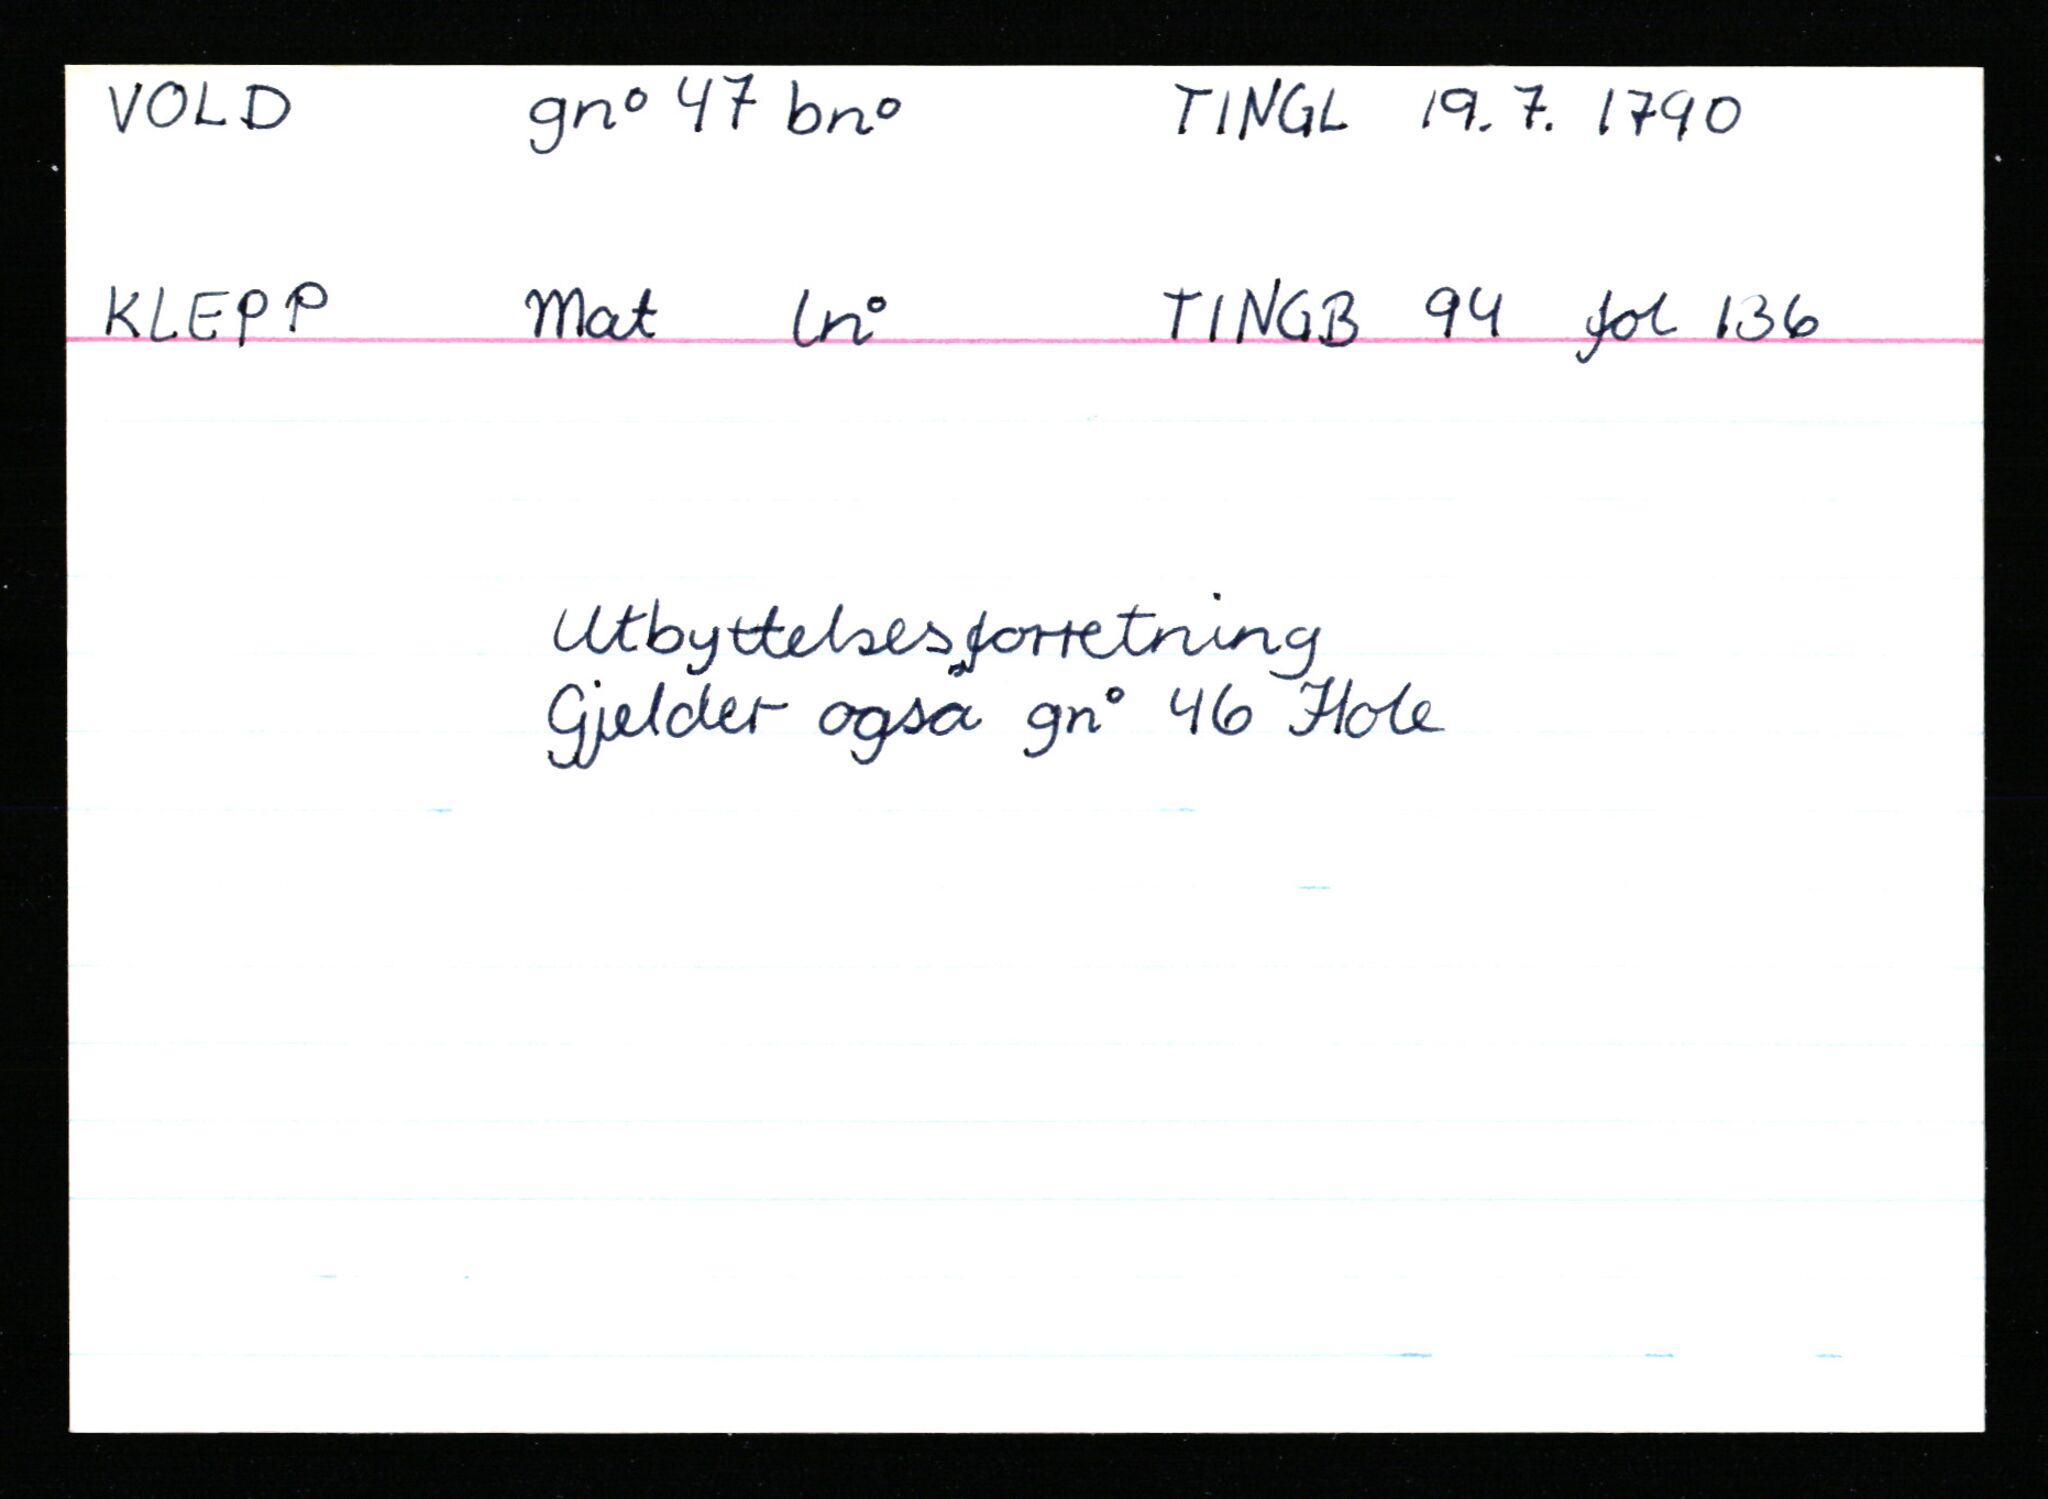 VOLD gnº 47 bnº TINGL 19. 7. 1790
KLEPP Mat lnº TINGB 94 fol 136
Utbyttelsesforretning
Gjelder også gnº 46 Hole